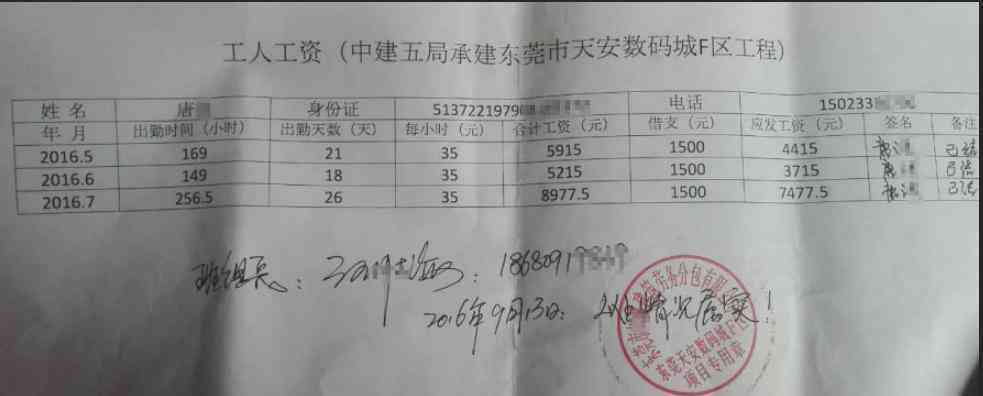 工人工资（中建五局承建东莞市天安数码城F区工程)
姓名 唐 身份证 5137221979 电话 150233
年月 出勤时间（小时） 出勤天数（天） 每小时（元） 合计工资（元） 借支（元） 应发工资（元） 签名 备注
2016.5 169 21 35 5915 1500 4415 已结
2016.6 149 18 35 5215 1500 3715 已结
2016.7 256.5 26 35 8977.5 1500 7477.5 已结
班组长： 1868091
2016年9月13日： 以上情况属实！
劳务分包有限
东莞天安数码城F区
项目专用章